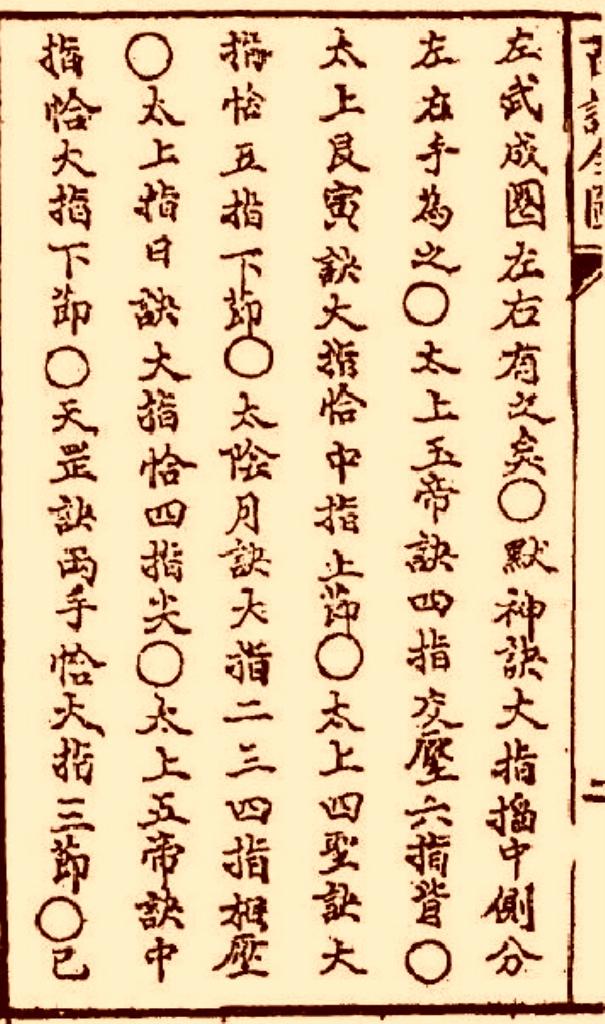 左武成圈左右有之矣○默神訣大指搯中側分
左右手為之○太上五帝訣四指交壓六指背○
太上艮寅訣大指恰中指上節○太上四聖訣大
指恰五指下節○太陰月訣大指二三四指相壓
○太上指日訣大指恰四指尖○太上五帝訣中
指恰大指下節○天罡訣両手恰大指三節○已